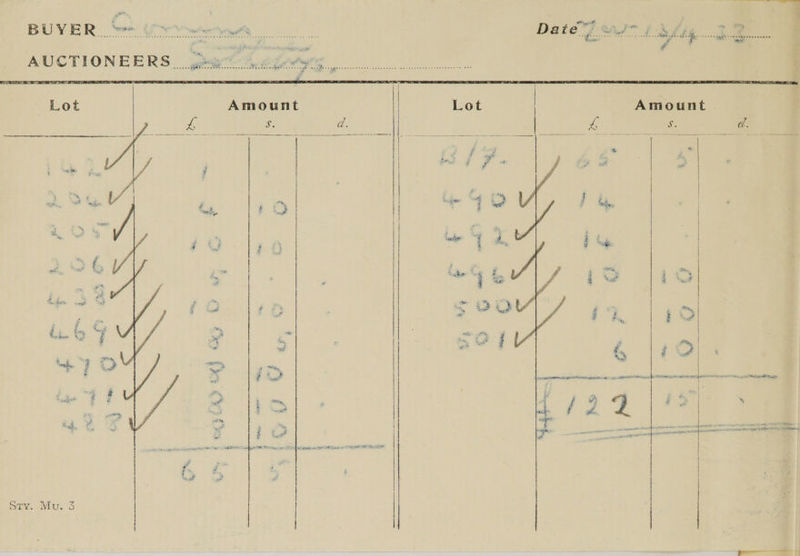 BUYER
AUCTIONEERS Sothebys
Date Nov 13/14 33
Lot Amount
£ s. d.
142 1 . .
204 4 10
205 10 10
206 5 . .
438 10 10
469 8 5
470 8 10
471 8 10
488 8 10
65 5 .
Lot Amount
£ s. d.
B/F. 65 5
490 14 . .
492 14
496 10 10
500 12 10
501 6 10 .
£122 15
STY. MU. 3